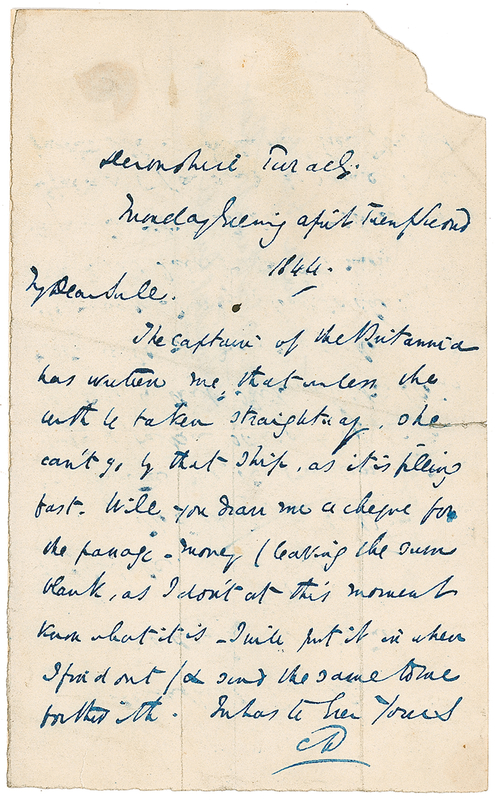 Devonshire Terrace.
Monday Evening April Twenty Second
1844.
My Dear Sir.
The Captain of the Britannia
has written me, that unless the
berth be taken straightway, she
can't go by that Ship, as it is filling
fast. Will you draw me a cheque for
the passage-money (leaving the sum
blank, as I don't at this moment
know what it is - I will put it in when
I find out) & send the same to me
forthwith. In haste Ever Yours
CD